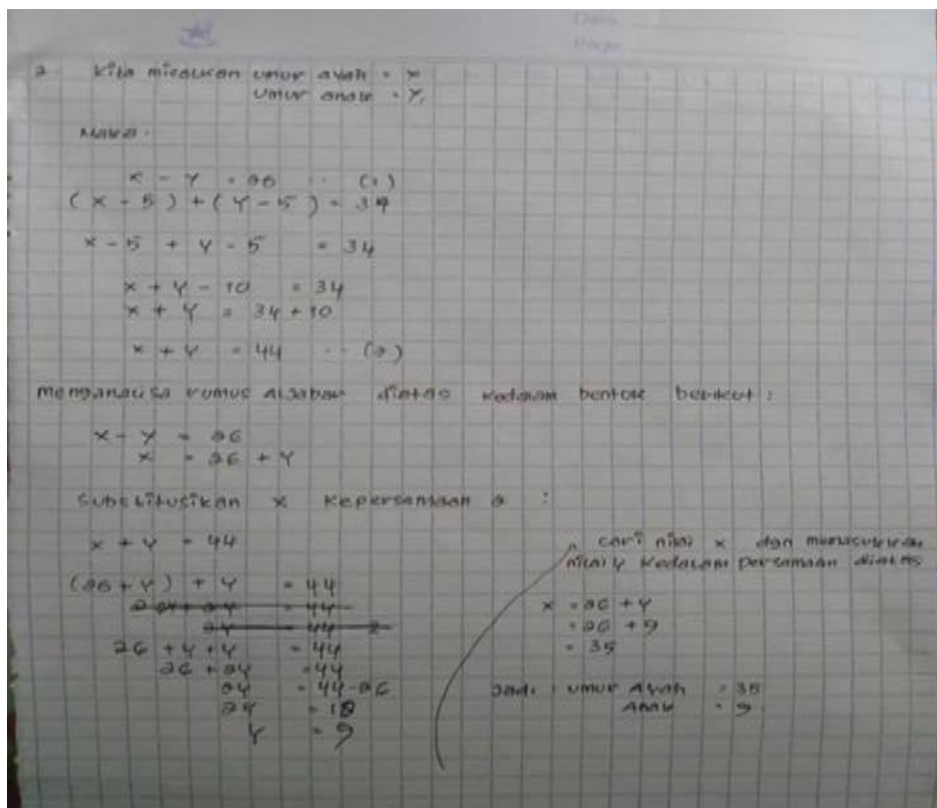 2. Kita misalkan umur ayah = x
umur anak = y,
Maka.
x - y = 26 ... (1)
(x - 5) + (y - 5) = 34
x - 5 + y - 5 = 34
x + y - 10 = 34
x + y = 34 + 10
x + y = 44 ... (2)
menganalisa rumus Aljabar diatas kedalam bentuk berikut :
x - y = 26
x = 26 + y
Substitusikan x kepersamaan 2 :
x + y = 44
(26 + y) + y = 44
26 + y + y = 44
26 + 2y = 44
2y = 44 - 26
2y = 18
y = 9
cari nilai x dan masukkan
nilai y kedalam persamaan diatas
x = 26 + y
= 26 + 9
= 35
Jadi : umur Ayah = 35
Anak = 9